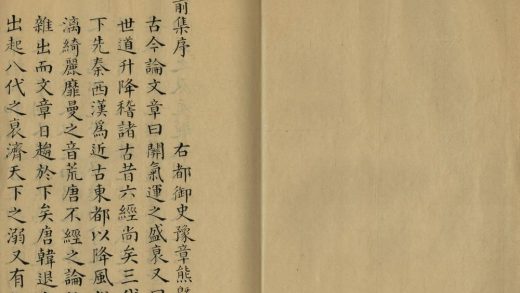 前集序 右都御史豫章熊
古今論文章曰關氣運之盛衰又曰
世道升降稽諸古昔六經尚矣三代
下先秦西漢爲近古東都以降風
漓綺麗靡曼之音荒唐不經之論
雜出而文章日趨於下矣唐韓退
出起八代之衰濟天下之溺又有